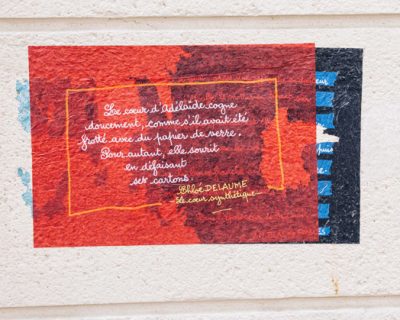 Le cœur d'Adélaïde cogne
doucement, comme s'il avait été
frotté avec du papier de verre.
Pour autant, elle sourit
en défaisant
ses cartons.
Chloé DELAUME
Le cœur synthétique